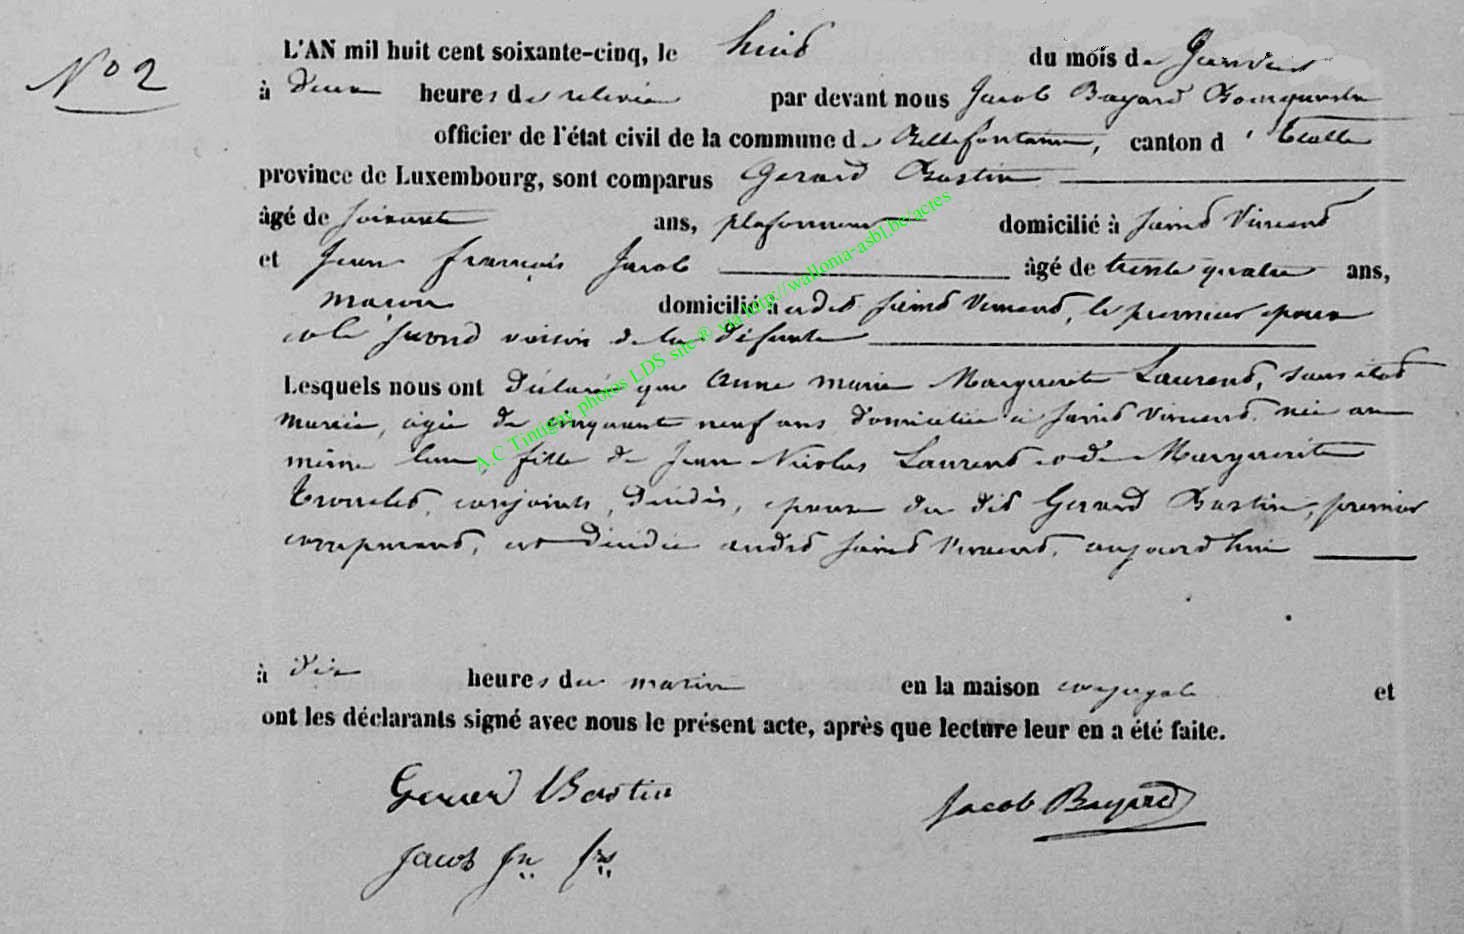 N° 2
L'AN mil huit cent soixante-cinq, le huit du mois de Janvier
à deux heures de relevée par devant nous Jacob Bayard Bourgmestre
officier de l'état civil de la commune de Bellefontaine, canton d'Etalle
province de Luxembourg, sont comparus Gerard Bastin
âgé de soixante ans, plafonneur domicilié à Saint Vincent
et Jean françois Jacob âgé de trente quatre ans,
macon domicilié audit Saint Vincent, le premier epoux
et le second voisin de la défunte
Lesquels nous ont déclaré que Anne marie Marguerite Laurent, sans état
, agée de cinquante neuf ans domiciliée à Saint Vincent, née au
même lieu, fille de Jean Nicolas Laurent et de Marguerite
conjoints, décédés, epouse du dit Gerard Bastin, premier
comparant, est décédée audit Saint Vincent, aujourd'hui
à dix heures du matin en la maison conjugale et
ont les déclarants signé avec nous le présent acte, après que lecture leur en a été faite.
Gerard Bastin
Jacob Bayard
Jacob Jn frs
A.C Tintigny photos LDS site® via http://wallonia-asbl.be/actes